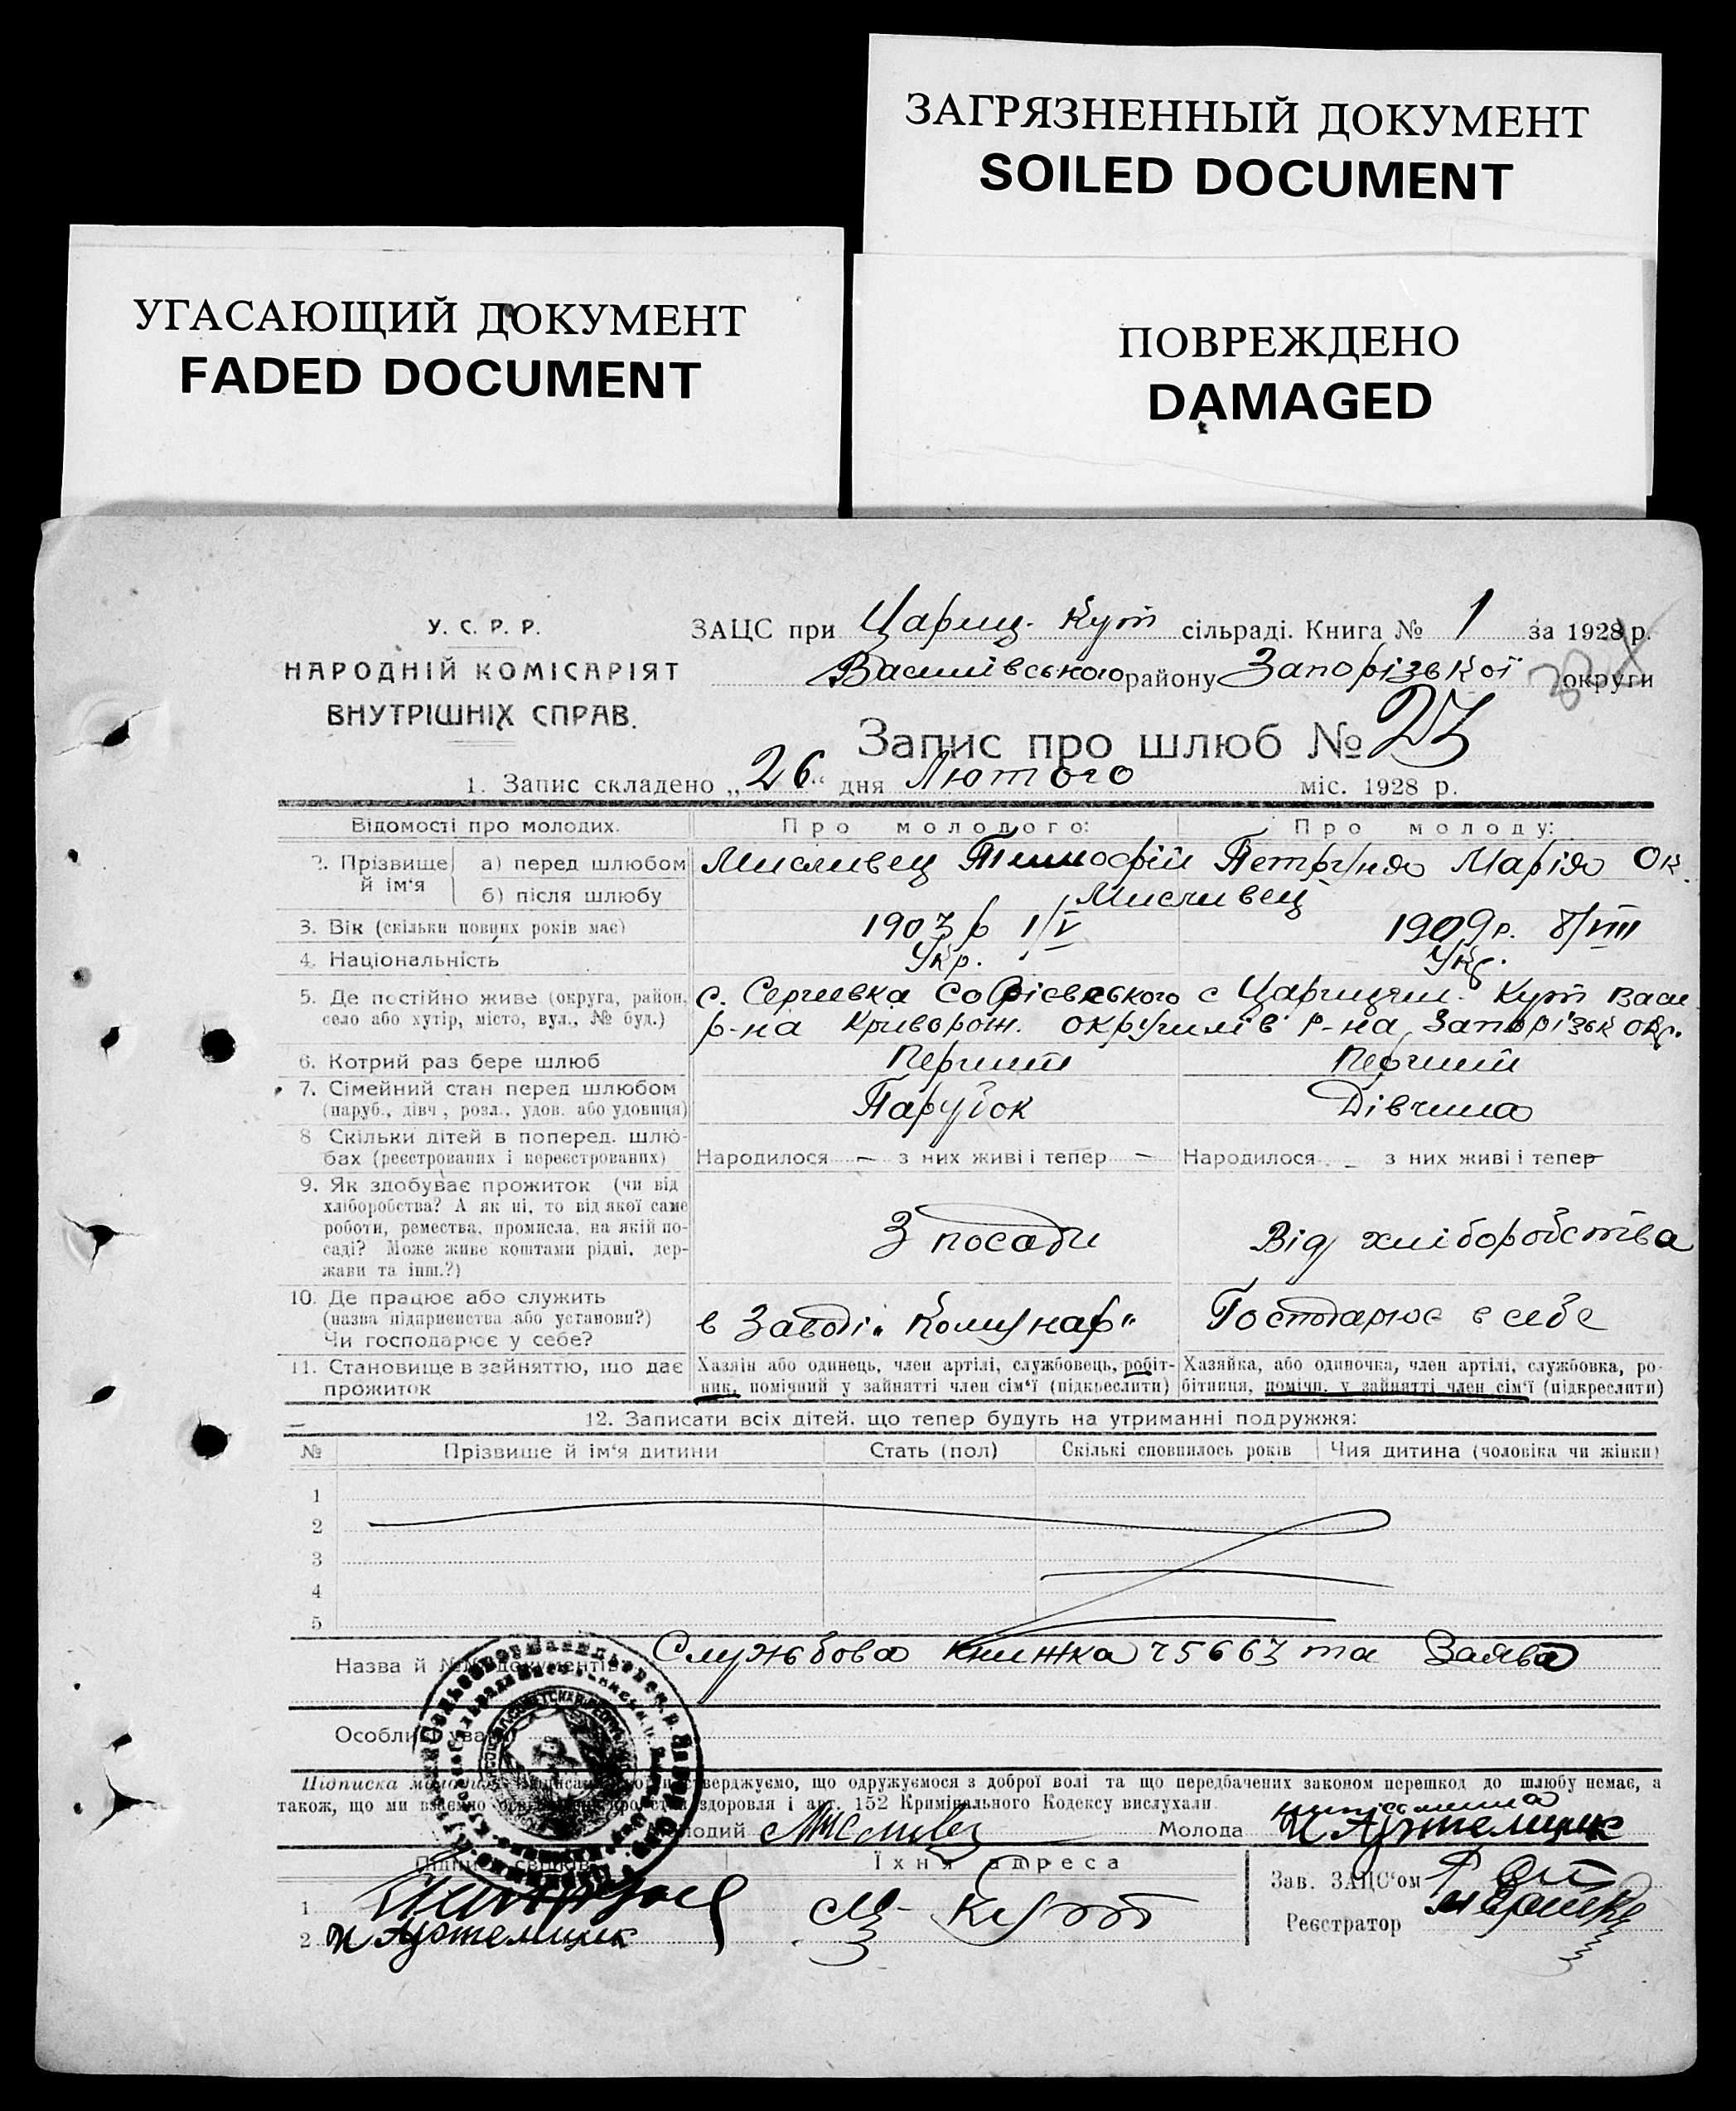 ЗАГРЯЗНЕННЫЙ ДОКУМЕНТ
SOILED DOCUMENT
УГАСАЮЩИЙ ДОКУМЕНТ
FADED DOCUMENT
ПОВРЕЖДЕНО
DAMAGED
У. С. Р. Р.
НАРОДНІЙ КОМІСАРІЯТ
ВНУТРІШНІХ СПРАВ.
ЗАЦС при Цариц. Кут сільраді. Книга № 1 за 1928 р.
Василівського району Запорізької округи
Запис про шлюб № 23
1. Запис складено „26“ дня Лютого міс. 1928 р.
Відомості про молодих. Про молодого: Про молоду:
2. Прізвище й ім‘я а) перед шлюбом Мисливец Тимофій Петруня Марія Ок.
б) після шлюбу Мисливец
3. Вік (скільки повних років має) 1903 р 1/V 1909 р. 8/VIII
4. Національність Укр. Укр.
5. Де постійно живе (округа, район, с. Сергиевка Софіевського с Царицин. Кут Васи
село або хутір, місто, вул., № буд.) р-на Криворож. округи лів р-на Запорізьк окр.
6. Котрий раз бере шлюб Перший Перший
7. Сімейний стан перед шлюбом Парубок Дівчина
(паруб., дівч., розл., удов. або удовиця)
8 Скільки дітей в поперед. шлю-
бах (реєстрованих і нереєстрованих) Народилося — з них живі і тепер — Народилося – з них живі і тепер –
9. Як здобуває прожиток (чи від
хліборобства? А як ні, то від якої саме
роботи, ремества, промисла, на якій по-
саді? Може живе коштами рідні, дер-
жави та інш.?) З посади Від хліборобства
10. Де працює або служить
(назва підприємства або установи?) в Заводі „Комунар“ Господарює в себе
Чи господарює у себе?
11. Становище в зайняттю, що дає Хазяїн або одинець, член артілі, службовець, робіт- Хазяйка, або одиночка, член артілі, службовка, ро-
прожиток ник, помічний у зайнятті член сім‘ї (підкреслити) бітниця, помічн. у зайнятті член сім‘ї (підкреслити)
12. Записати всіх дітей, що тепер будуть на утриманні подружжя:
№ Прізвище й ім‘я дитини Стать (пол) Скількі сповнилось років Чия дитина (чоловіка чи жінки)
1
2
3
4
5
Назва й №№ документів Службова книжка 75663 та Заява
Особливі уваги
Підписка молодих: стверджуємо, що одружуємося з доброї волі та що передбачених законом перешкод до шлюбу немає, а
також, що ми взаємно здоровля і арт. 152 Кримінального Кодексу вислухали.
Молодий Мисливец Молода Артемицик
Підписи свідків Їхня адреса
1 Ц Кут Зав. ЗАЦС‘ом
2 Артемицик Реєстратор